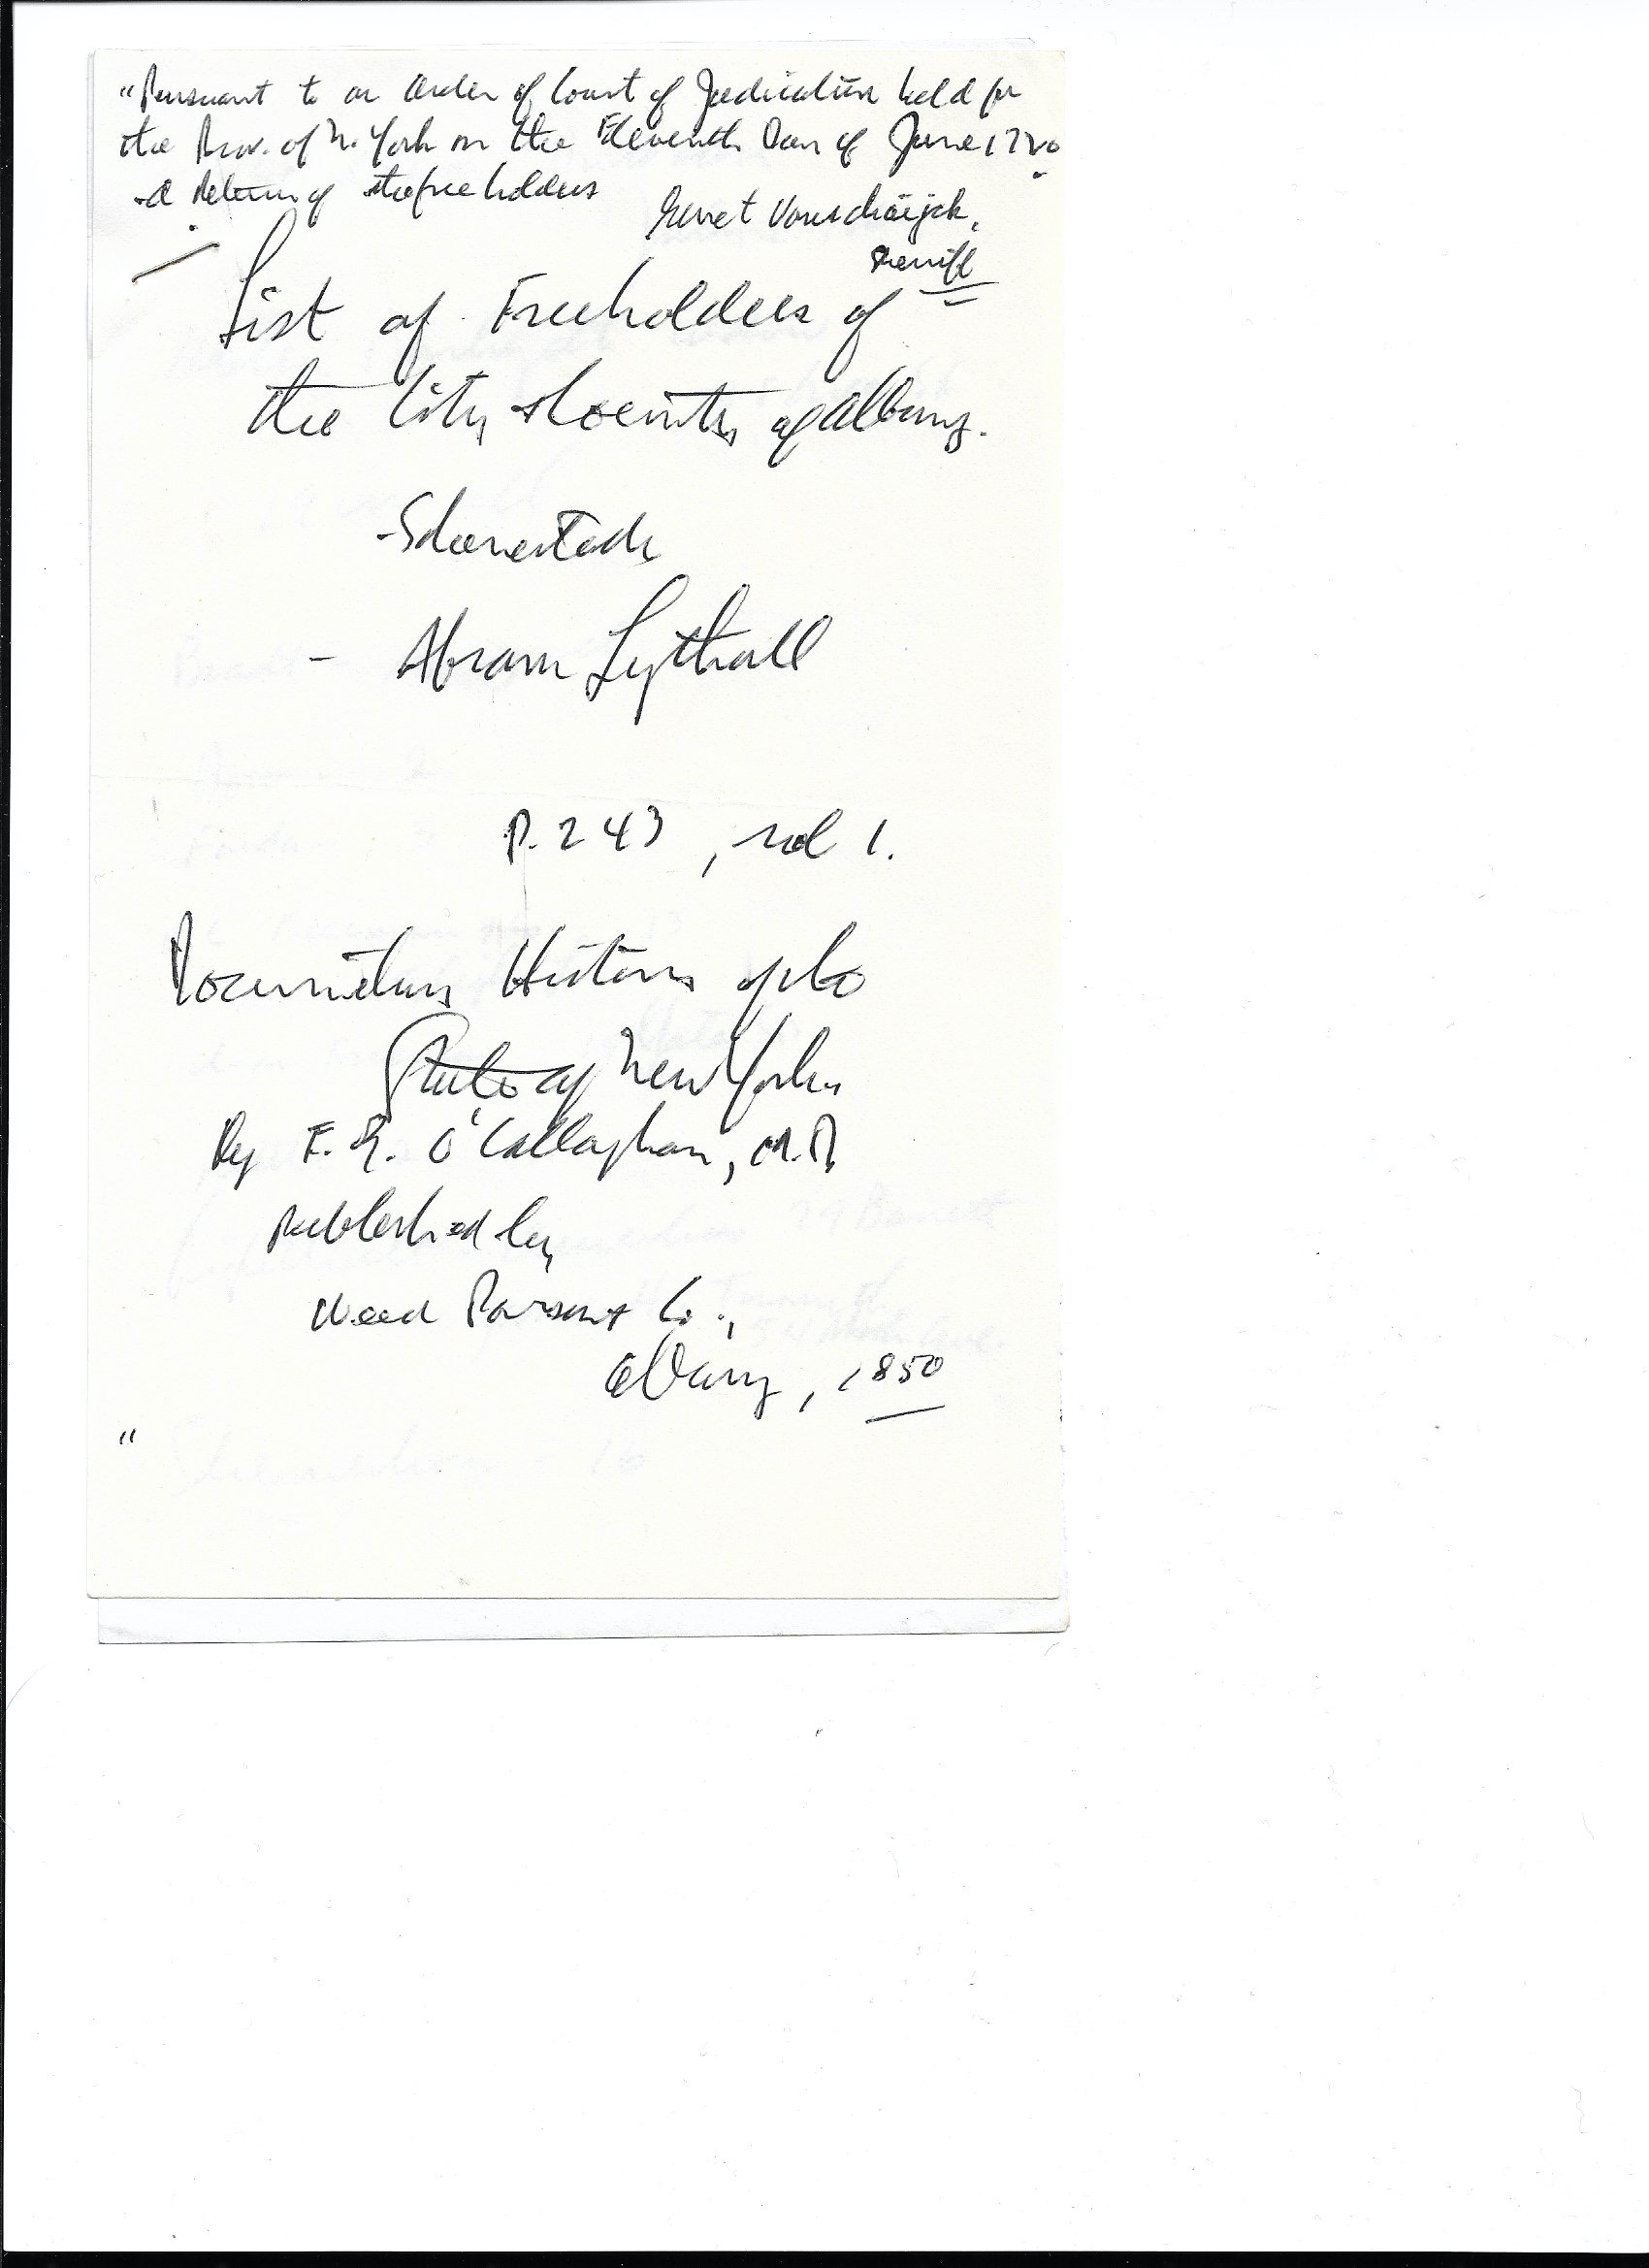 "Pursuant to an Order of Court of Judicature held for
the Prov. of N. York on the Eleventh Day of June 1720
- A Return of the freeholders
Gerret Vanschaijck,
Sheriff
List of Freeholders of
the City & County of Albany.
- Schenectady
- Abram Lythall
P. 243, vol 1.
Documentary History of the
State of New York
By E. B. O'Callaghan, M.D.
published by
Weed Parsons & Co.,
Albany, 1850
"